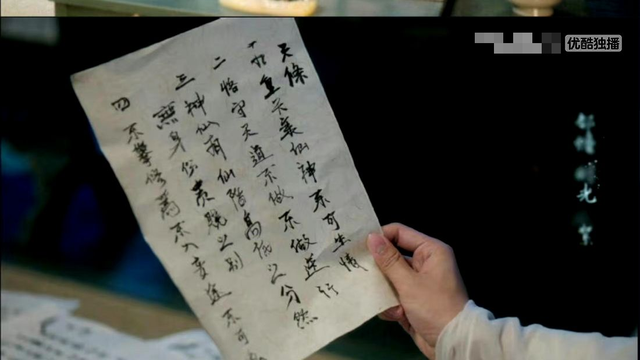 优酷独播
天條
一 九重天衆仙神不可生情
二 恪守天道不做不做逆行
三 神仙 仙階高低之分然
無身份貴賤之別
四 不 修 不入 途不可